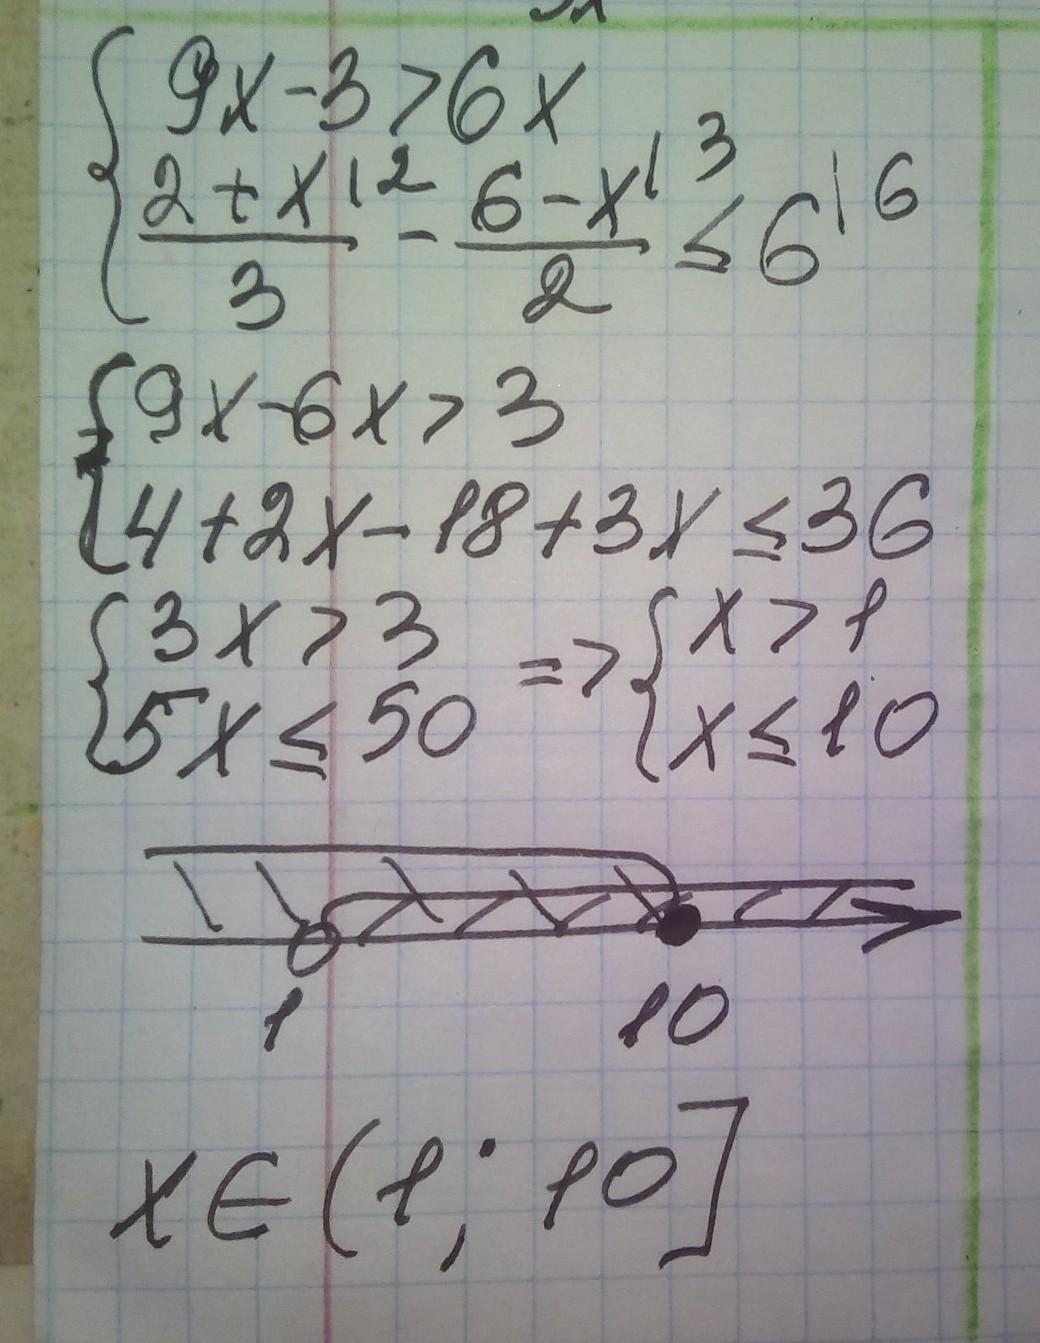 { 9x-3>6x
(2+x)/3 |2 - (6-x)/2 |3 ≤ 6 |6
{ 9x-6x>3
4+2x-18+3x≤36
{ 3x>3 => { x>1
5x≤50 x≤10
1 10
x∈(1;10]